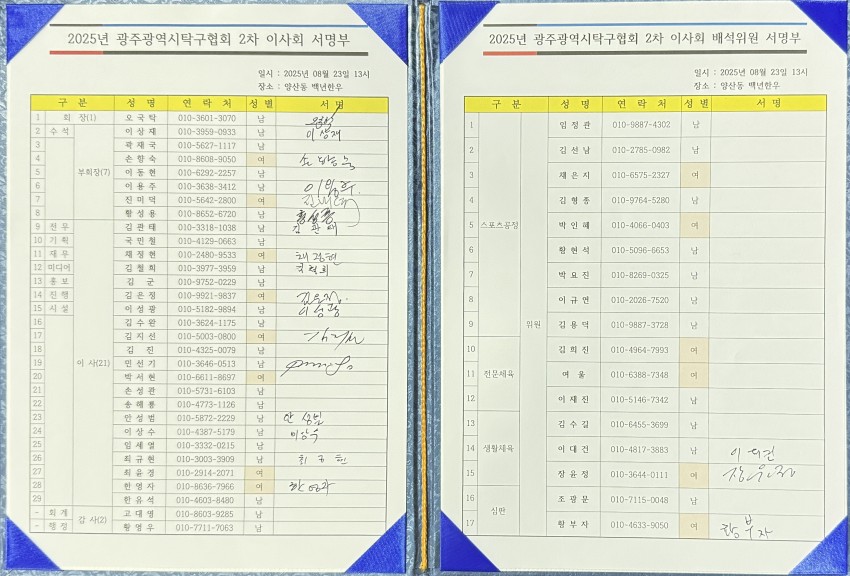 2025년 광주광역시탁구협회 2차 이사회 서명부
일시 : 2025년 08월 23일 13시
장소 : 양산동 백년한우
구 분 성 명 연 락 처 성 별 서 명
1 회 장(1) 오국탁 010-3601-3070 남
2 수석 부회장(7) 이상재 010-3959-0933 남 이상재
3 곽재국 010-5627-1117 남
4 손항숙 010-8608-9050 여 손항숙
5 이동현 010-6292-2257 남
6 이용주 010-3638-3412 남 이용주
7 진미덕 010-5642-2800 여 진미덕
8 황성용 010-8652-6720 남 황성용
9 전무 이사(21) 김관태 010-3318-1038 남 김관태
10 기획 국민철 010-4129-0663 남
11 재무 채정현 010-2480-9533 여 채정현
12 미디어 김철희 010-3977-3959 남
13 홍보 김 군 010-9752-0229 남
14 진행 김은정 010-9921-9837 여 김은정
15 시설 이성광 010-5182-9894 남 이성광
16 김수완 010-3624-1175 남
17 김지선 010-5003-0800 여
18 김 진 010-4325-0079 남
19 민선기 010-3646-0513 남
20 박서현 010-6611-8697 여
21 손성관 010-5731-6103 남
22 송해룡 010-4773-1126 남
23 안성벌 010-5872-2229 남
24 이상수 010-4387-5179 남 이상수
25 임세열 010-3332-0215 남
26 최규현 010-3003-3909 남 최규현
27 최윤경 010-2914-2071 여
28 한영자 010-8636-7966 여 한영자
29 한유석 010-4603-8480 남
- 회계 감사(2) 고대영 010-8603-9285 남
- 행정 황영우 010-7711-7063 남
2025년 광주광역시탁구협회 2차 이사회 배석위원 서명부
일시 : 2025년 08월 23일 13시
장소 : 양산동 백년한우
구 분 성 명 연 락 처 성 별 서 명
1 스포츠공정 위원 임정관 010-9887-4302 남
2 김선남 010-2785-0982 남
3 채은지 010-6575-2327 여
4 김형종 010-9764-5280 남
5 박인혜 010-4066-0403 여
6 황현석 010-5096-6653 남
7 박요진 010-8269-0325 남
8 이규면 010-2026-7520 남
9 김용덕 010-9887-3728 남
10 전문체육 김희진 010-4964-7993 여
11 여울 010-6388-7348 여
12 이재진 010-5146-7342 남
13 생활체육 김수길 010-6455-3699 남
14 이대건 010-4817-3883 남 이대건
15 장윤정 010-3644-0111 여 장윤정
16 심판 조광문 010-7115-0048 남
17 황부자 010-4633-9050 여 황부자